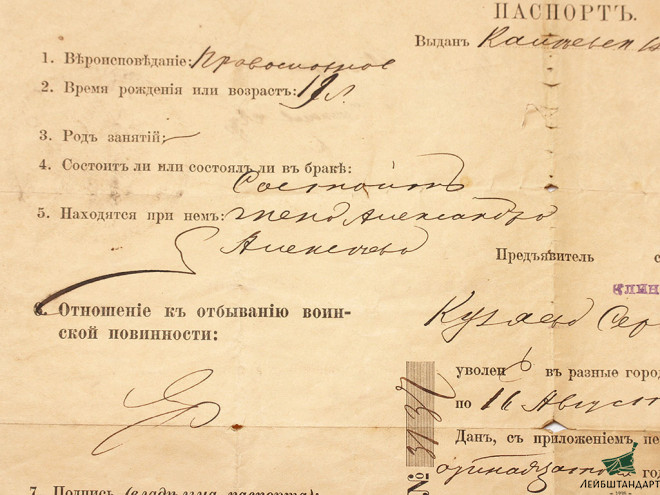 ПАСПОРТЪ.
Выданъ
1. Вѣроисповѣданіе: Православное
2. Время рожденія или возрастъ: 19 л.
3. Родъ занятій:
4. Состоитъ ли или состоялъ ли въ бракѣ:
Состоитъ
5. Находятся при немъ: жена Александра
Алексѣева
Предъявитель с
6. Отношеніе къ отбыванію воин-
ской повинности:
Сер
уволен въ разные горо
по 16 Август
№ 3137
Данъ, съ приложеніемъ пе
одиннадцат го
7. Подпись (владѣльца паспорта):
ЛЕЙБШТАНДАРТ